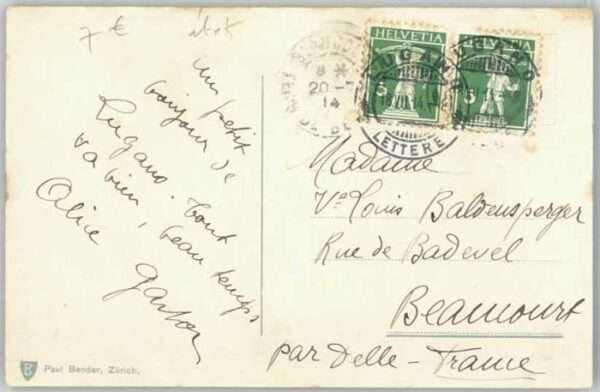 7 €
un petit
bonjour de
Lugano. Tout
va bien, beau temps
Alice
HELVETIA
HELVETIA
5
5
LUGANO
18 VII 14
LETTERE
LUGANO
8
20-7
14
Madame
Ve Louis Baldensperger
Rue de Badevel
Beaucourt
par Delle-France
Paul Bender, Zürich.